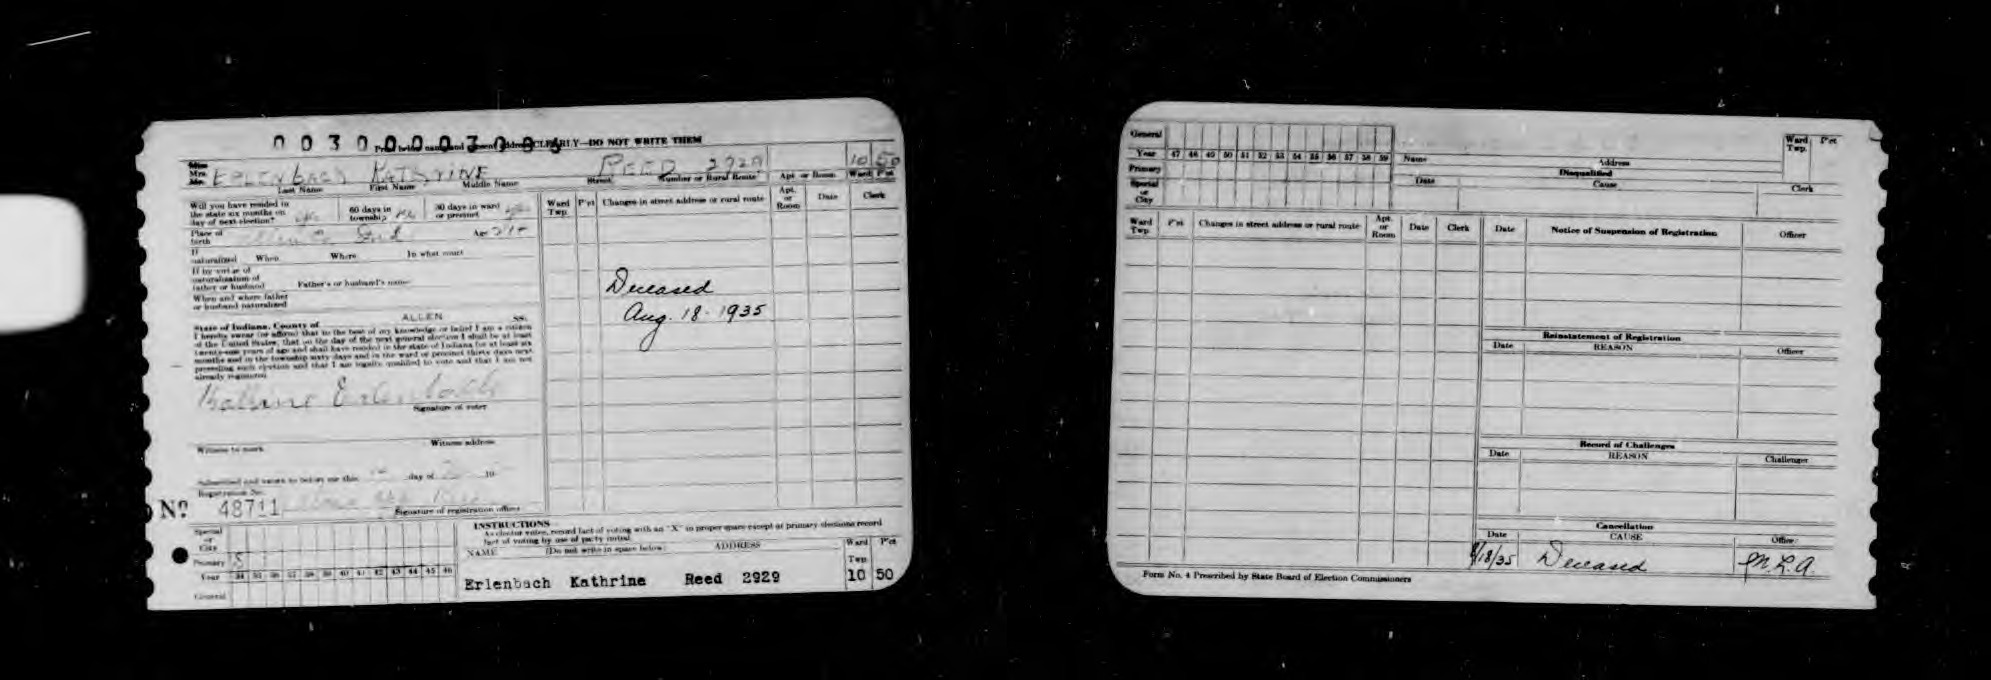 Print below name and present address CLEARLY—DO NOT WRITE THEM
Miss
Mrs.
Mr. ERLENBACH KATHRINE REED 2929 10 50
Last Name First Name Middle Name Street Number or Rural Route Apt. or Room Ward P'ct
Will you have resided in the state six months on day of next election? yes 60 days in township yes 30 days in ward or precinct yes
Place of birth Allen Co Ind Age
If naturalized When Where In what court
If by virtue of naturalization of father or husband Father's or husband's name
When and where father or husband naturalized
State of Indiana, County of ALLEN SS.
I hereby swear (or affirm) that to the best of my knowledge or belief I am a citizen
of the United States, that on the day of the next general election I shall be at least
twenty-one years of age and shall have resided in the state of Indiana for at least six
months and in the township sixty days and in the ward or precinct thirty days next
preceding such election and that I am legally qualified to vote and that I am not
already registered.
Kathrine Erlenbach
Signature of voter
Witness to mark Witness address
Subscribed and sworn to before me this day of 19
Registration No.
No 48711
Signature of registration officer
Ward Twp. P'ct Changes in street address or rural route Apt. or Room Date Clerk
Deceased
Aug. 18-1935
Special or City
Primary
Year 34 35 36 37 38 39 40 41 42 43 44 45 46
General
INSTRUCTIONS
As elector votes, record fact of voting with an "X" in proper space except at primary elections record
fact of voting by use of party initial
NAME (Do not write in space below) ADDRESS Ward Twp. P'ct
Erlenbach Kathrine Reed 2929 10 50
General
Year 47 48 49 50 51 52 53 54 55 56 57 58 59
Primary
Special or City
Name Address Ward Twp. P'ct
Disqualified
Date Cause Clerk
Ward Twp. P'ct Changes in street address or rural route Apt. or Room Date Clerk
Date Notice of Suspension of Registration Officer
Reinstatement of Registration
Date REASON Officer
Record of Challenges
Date REASON Challenger
Cancellation
Date CAUSE Officer
8/18/35 Deceased M.L.A.
Form No. 4 Prescribed by State Board of Election Commissioners